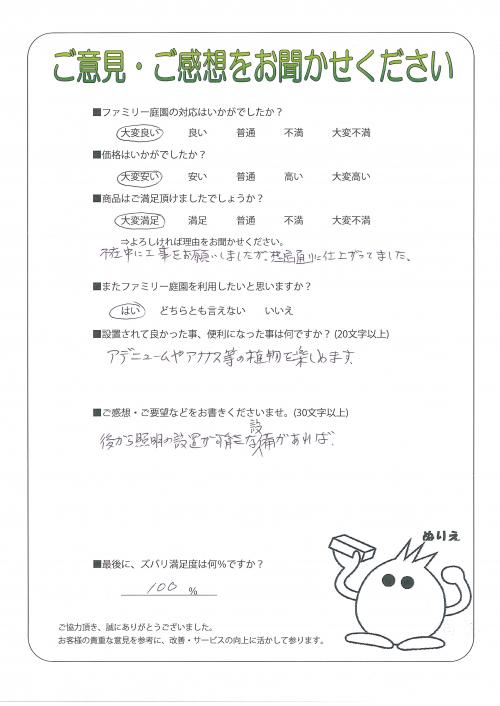 ご意見・ご感想をお聞かせください
■ファミリー庭園の対応はいかがでしたか？
大変良い 良い 普通 不満 大変不満
■価格はいかがでしたか？
大変安い 安い 普通 高い 大変高い
■商品はご満足頂けましたでしょうか？
大変満足 満足 普通 不満 大変不満
⇒よろしければ理由をお聞かせください。
不在中に工事をお願いしましたが、想像通りに仕上がってました。
■またファミリー庭園を利用したいと思いますか？
はい どちらとも言えない いいえ
■設置されて良かった事、便利になった事は何ですか？(20文字以上)
アデニュームやアナナス等の植物を楽しめます
■ご感想・ご要望などをお書きくださいませ。(30文字以上)
後から照明の設置が可能な設備があれば、
ぬりえ
■最後に、ズバリ満足度は何％ですか？
100 ％
ご協力頂き、誠にありがとうございました。
お客様の貴重な意見を参考に、改善・サービスの向上に活かして参ります。